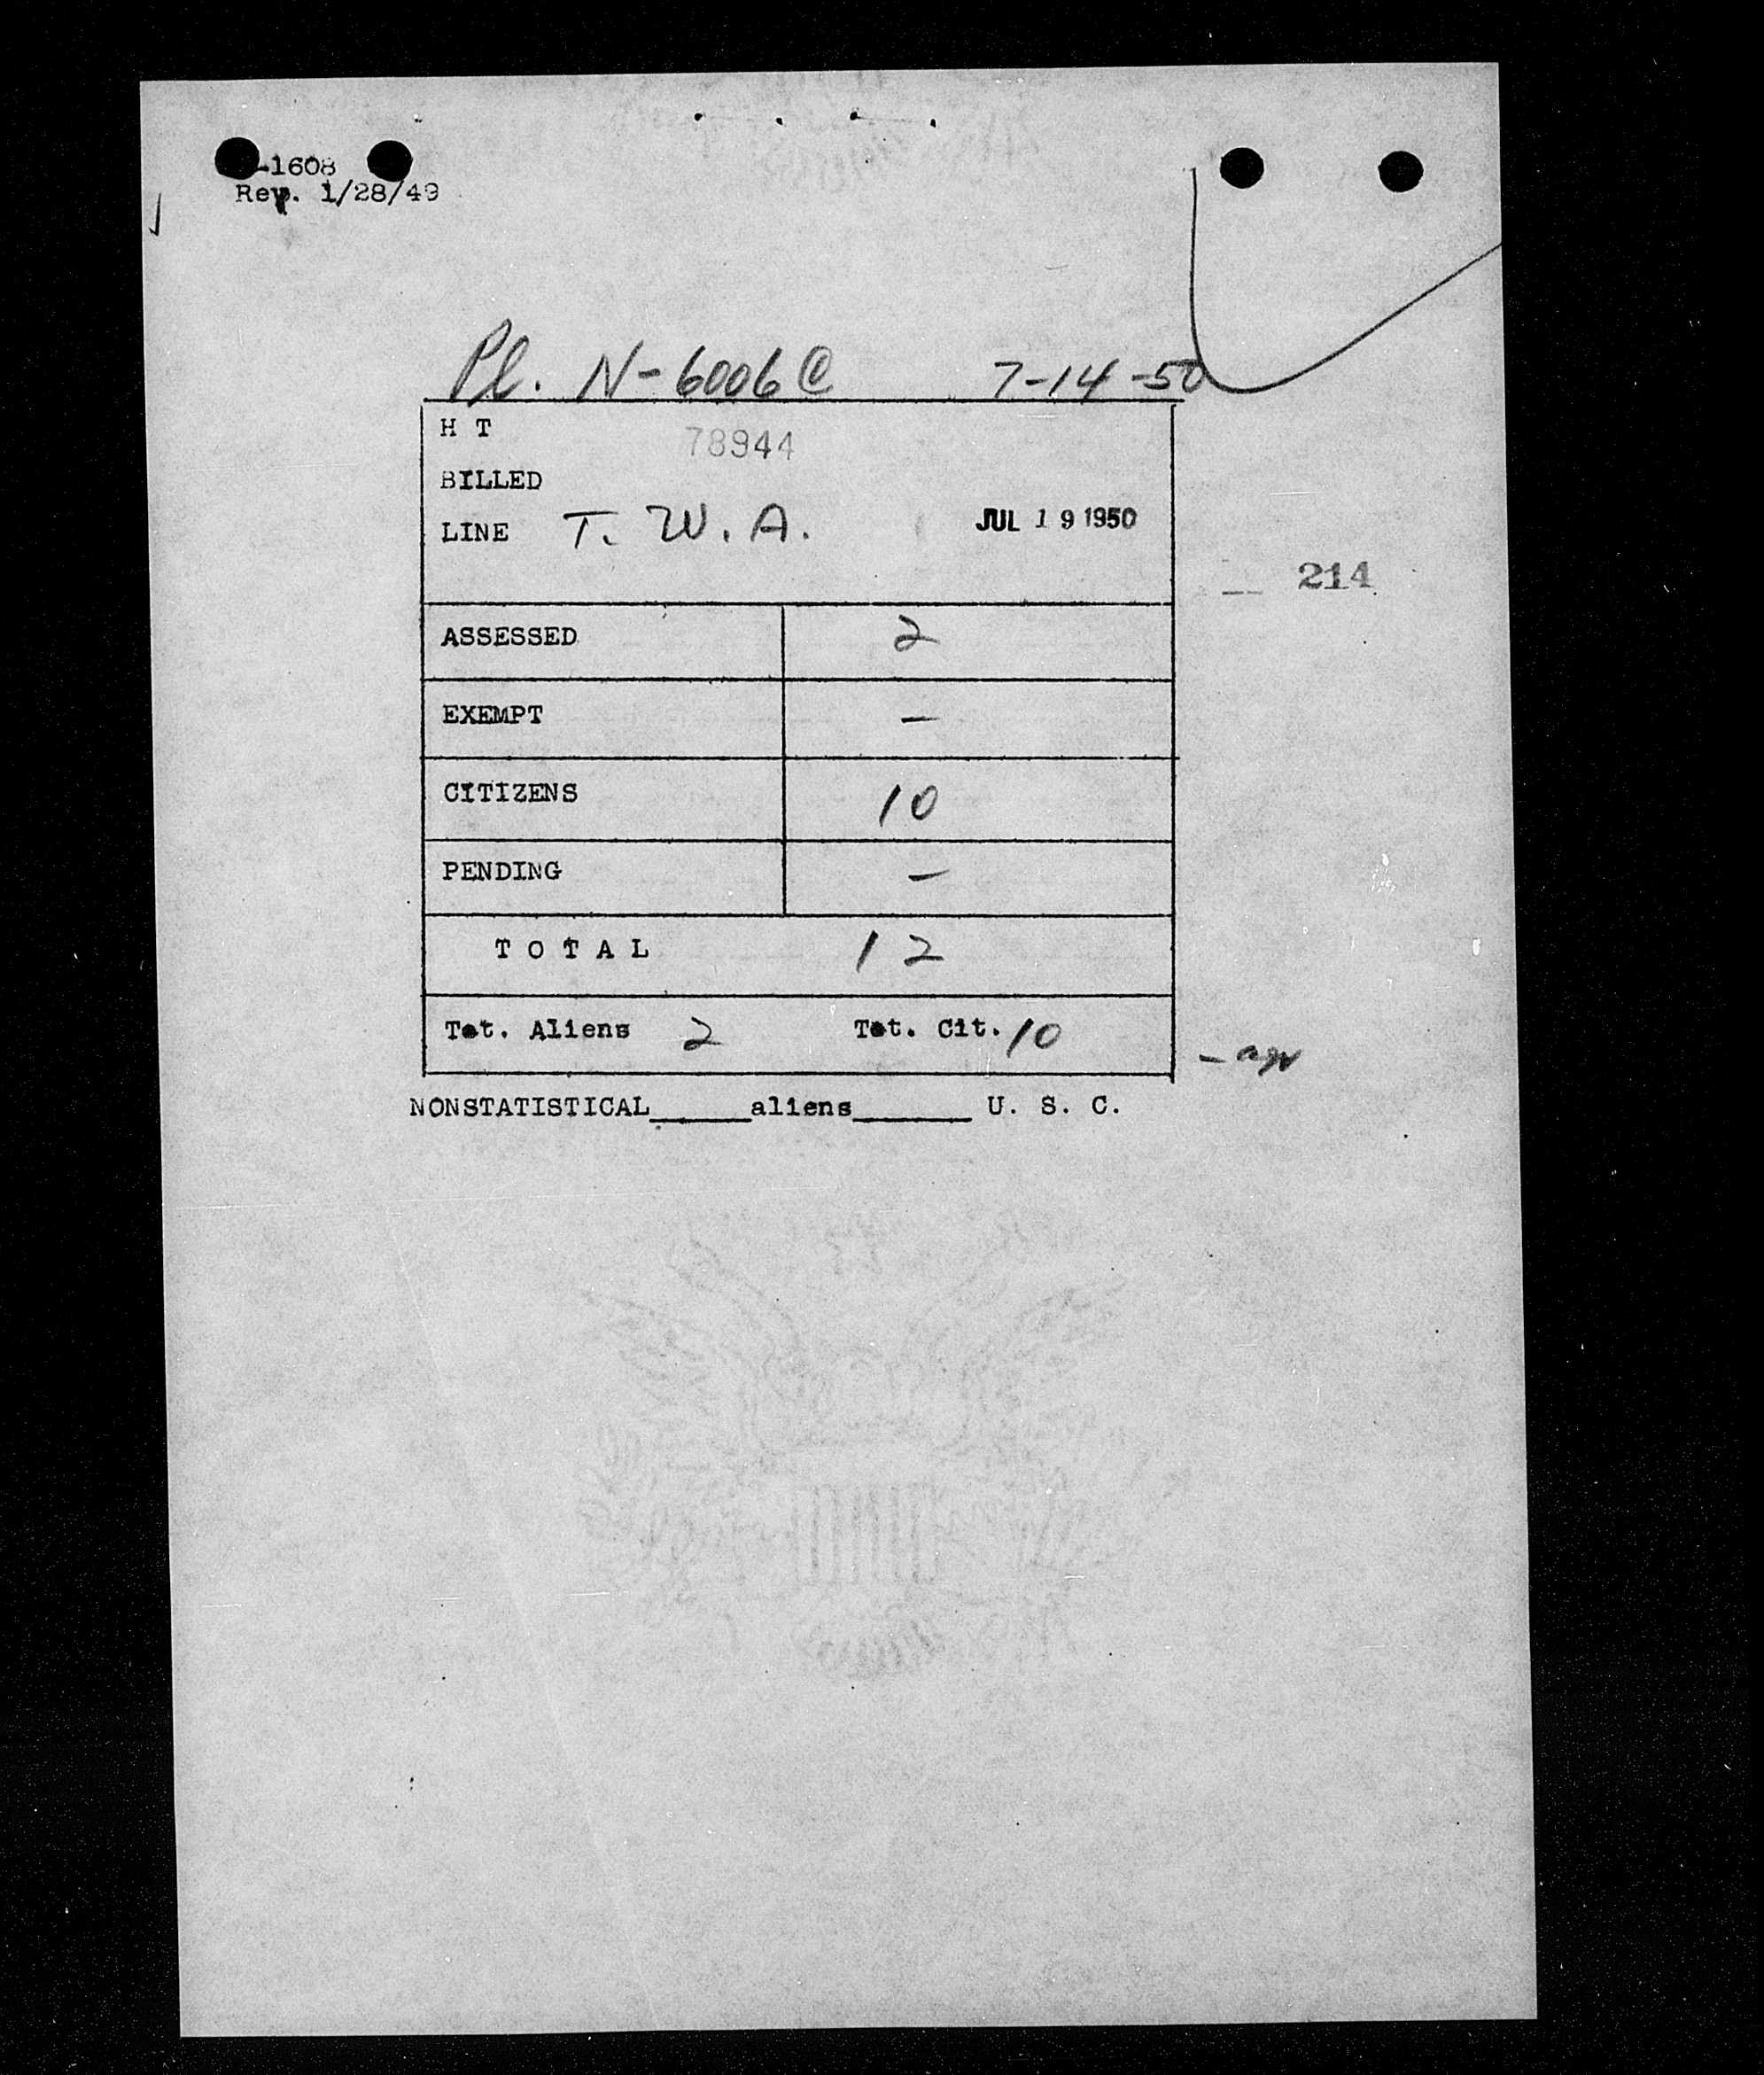 -1608
Rev. 1/28/49
Pl. N-6006C 7-14-50
H T 78944
BILLED
LINE T. W. A. JUL 19 1950
214
ASSESSED 2
EXEMPT –
CITIZENS 10
PENDING –
TOTAL 12
Tot. Aliens 2 Tot. Cit. 10
NONSTATISTICAL______aliens_______ U. S. C.